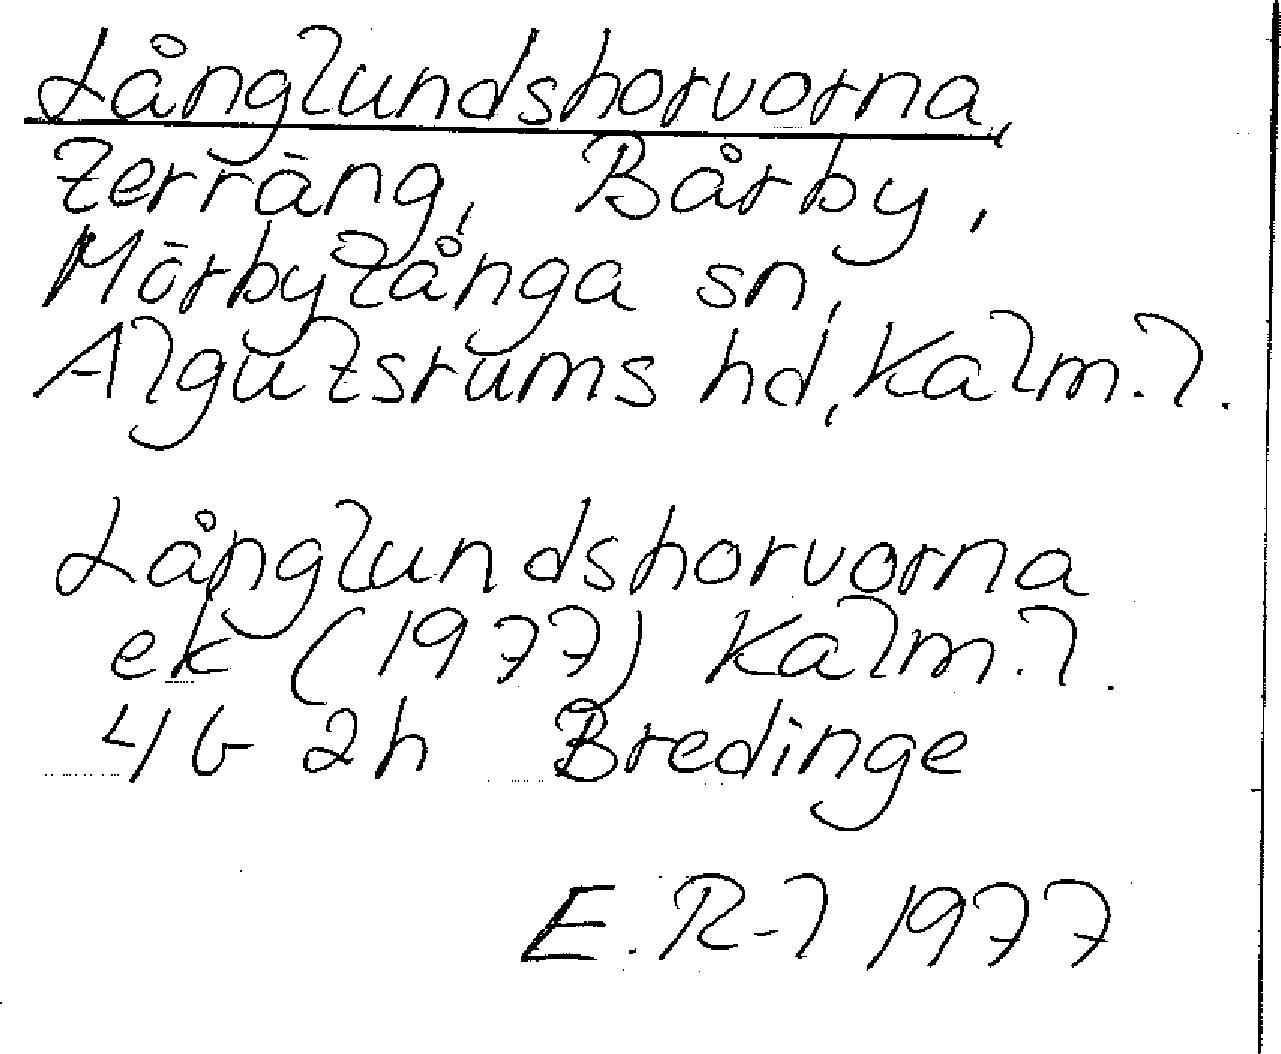 Långlundshorvorna,
terräng, Bårby,
Mörbylånga sn,
Algutsrums hd, Kalm. l.
Långlundshorvorna
ek (1977) Kalm. l.
4G 2h Bredinge
E. R-l 1977